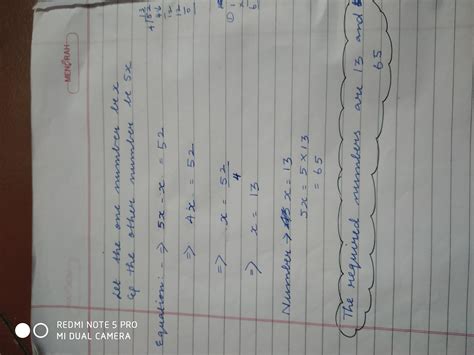 MENORAH
Let the one number be x
the other number be 5x
Equation :- ⇒ 5x - x = 52
⇒ 4x = 52
⇒ x = 52/4
⇒ x = 13
Number → x = 13
5x = 5×13
= 65
The required numbers are 13 and
65
REDMI NOTE 5 PRO
MI DUAL CAMERA